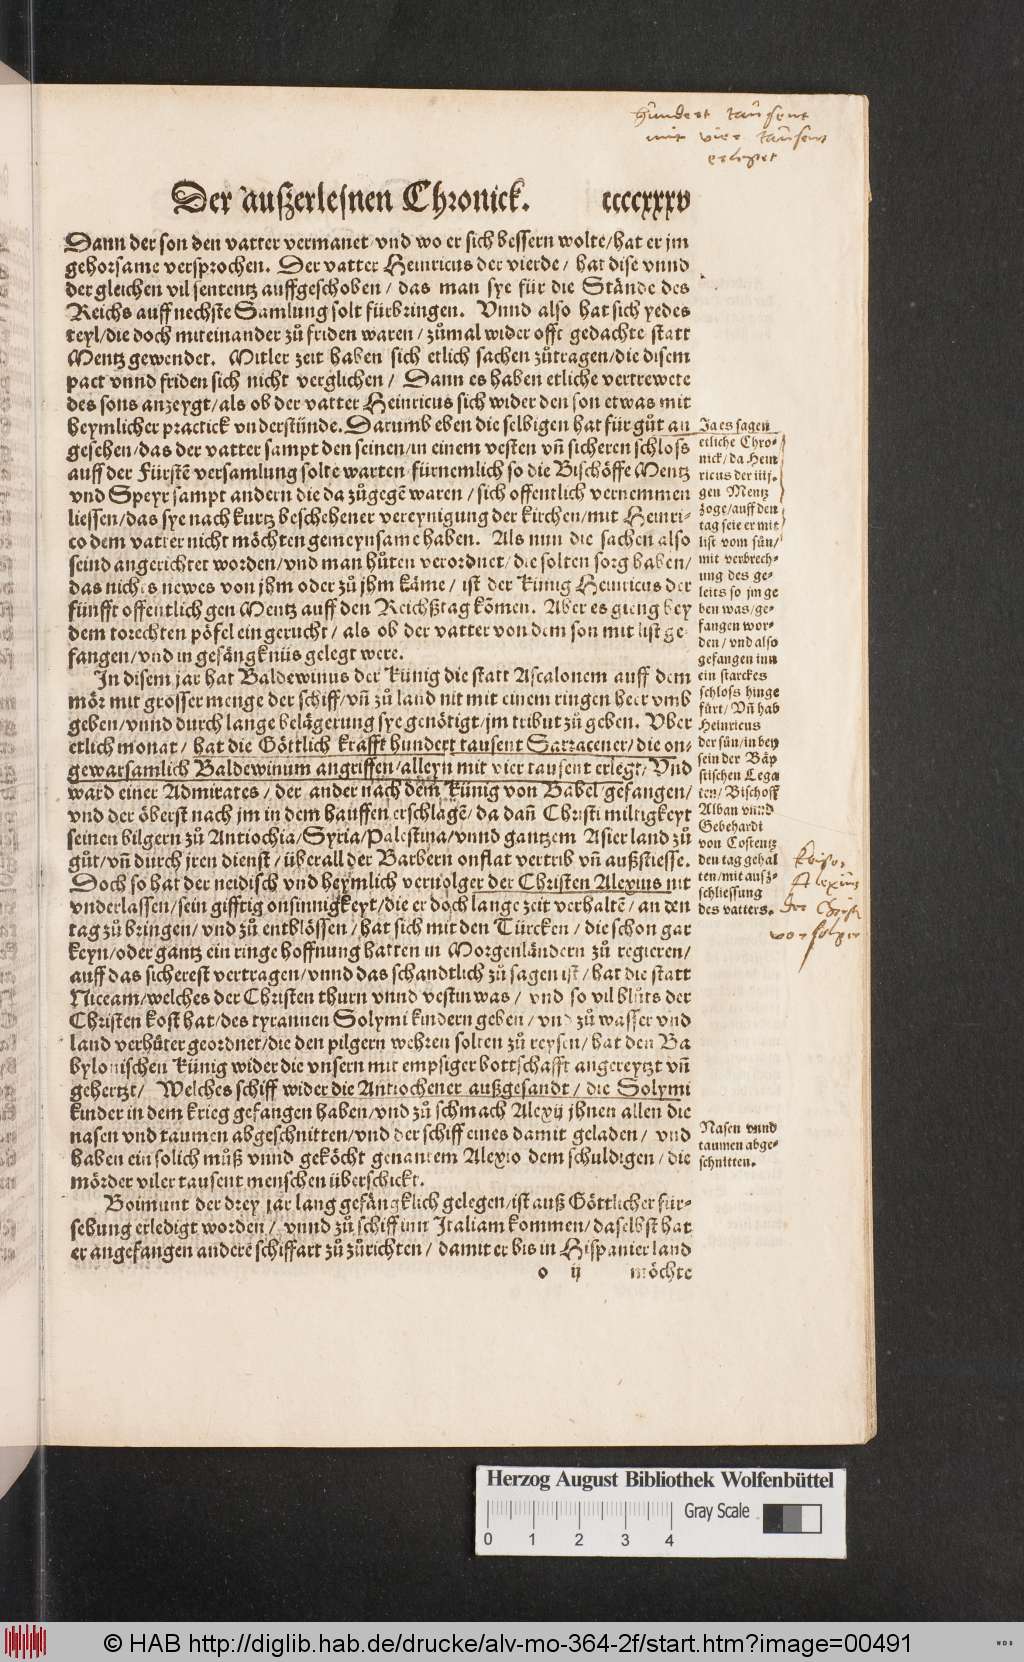 hundert tausent
mit vier tausent
erlegt
Der außerlesnen Chronick. ccccxxxv
Dann der son den vatter vermanet/vnd wo er sich bessern wolte/hat er jm
gehorsame versprochen. Der vatter Heinricus der vierde/ hat dise vnnd
der gleichen vil sententz auffgeschoben/ das man sye für die Stände des
Reichs auff nechste Samlung solt fürbringen. Vnnd also hat sich yedes
teyl/die doch miteinander zů friden waren/ zůmal wider offt gedachte statt
Mentz gewendet. Mitler zeit haben sich etlich sachen zůtragen/die disem
pact vnnd friden sich nicht verglichen/ Dann es haben etliche vertrewete
des sons anzeygt/als ob der vatter Heinricus sich wider den son etwas mit
heymlicher practick vnderstünde. Darumb eben die selbigen hat für gůt an
gesehen/das der vatter sampt den seinen/in einem vesten vñ sicheren schloss
auff der Fürstẽ versamlung solte warten/fürnemlich so die Bischöffe Mentz
vnd Speyr sampt andern die da zůgegẽ waren/ sich offentlich vernemmen
liessen/das sye nach kurtz beschehener vereynigung der kirchen/mit Heinri-
co dem vatter nicht möchten gemeynsame haben. Als nun die sachen also
seind angerichtet worden/vnd man hůten verordnet/die solten sorg haben/
das nichts newes von jhm oder zů jhm käme/ ist der Künig Heinricus der
fünfft offentlich gen Mentz auff den Reichßtag kömen. Aber es gieng bey
dem torechten pöfel ein gerucht/ als ob der vatter von dem son mit list ge
fangen/vnd in gefängknüs gelegt were.
In disem jar hat Baldewinus der Künig die statt Ascalonem auff dem
mör mit grosser menge der schiff/vñ zů land nit mit einem ringen heer vmb
geben/vnnd durch lange belägerung sye genötigt/jm tribut zů geben. Vber
etlich monat/ hat die Göttlich krafft hundert tausent Sarracener/die on-
gewarsamlich Baldewinum angriffen/alleyn mit vier tausent erlegt/ Vnd
ward einer Admirates/ der ander nach dem Künig von Babel/gefangen/
vnd der öberst nach jm in dem hauffen erschlagẽ/da dañ Christi miltigkeyt
seinen bilgern zů Antiochia/Syria/Palestina/vnnd gantzem Asier land zů
gůt/vñ durch jren dienst/ überall der Barbern onflat vertrib vñ außstiesse.
Doch so hat der neidisch vnd heymlich veruolger der Christen Alexius nit
vnderlassen/sein gifftig onsinnigkeyt/die er doch lange zeit verhaltẽ/ an den
tag zů bringen/vnd zů entblössen/hat sich mit den Türcken/ die schon gar
keyn/oder gantz ein ringe hoffnung hatten in Morgenländern zů regieren/
auff das sicherest vertragen/vnnd das schandtlich zů sagen ist/ hat die statt
Niceam/welches der Christen thurn vnnd vestin was/ vnd so vil blůts der
Christen kost hat/des tyrannen Solymi kindern geben/ vnd zů wasser vnd
land verhüter geordnet/die den pilgern wehren solten zů reysen/ hat den Ba
bylonischen Künig wider die vnsern mit empsiger bottschafft angereytzt vñ
gehertzt/ Welches schiff wider die Antiochener außgesandt/ die Solymi
kinder in dem krieg gefangen haben/vnd zů schmach Alexij jhnen allen die
nasen vnd taumen abgeschnitten/vnd der schiff eines damit geladen/ vnd
haben ein solich můß vnnd geköcht genantem Alexio dem schuldigen/die
mörder viler tausent menschen überschickt.
Boimunt der drey jar lang gefängklich gelegen/ist auß Göttlicher für-
sehung erledigt worden/ vnnd zů schiff inn Italiam kommen/daselbst hat
er angefangen anderẽ schiffart zů zůrichten/ damit er bis in Hispanier land
o ij möchte
Ja es sagen
etliche Chro-
nick/da Hein
ricus der iiij.
gen Mentz
zoge/auff den
tag seie er mit
list vom sůn/
mit verbrech-
ung des ge-
leits so jm ge
ben was/ge-
fangen wor-
den/vnd also
gefangen inn
ein starckes
schloss hinge
fürt/ Vñ hab
Heinricus
der sün/in bey
sein der Bäp
stischen Lega
ten/Bischoff
Alban vnnd
Gebehardi
von Costentz
den tag gehal
ten/mit auß-
schliessung
des vatters.
Keiser
Alexius
der Christen
verfolger
Nasen vnnd
taumen abge-
schnitten.
Herzog August Bibliothek Wolfenbüttel
Gray Scale
0 1 2 3 4
© HAB http://diglib.hab.de/drucke/alv-mo-364-2f/start.htm?image=00491